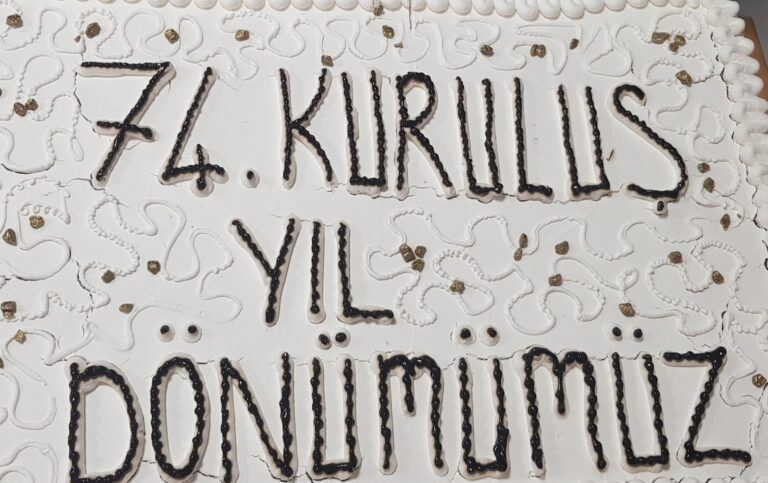 74. KURULUŞ
YIL
DÖNÜMÜMÜZ